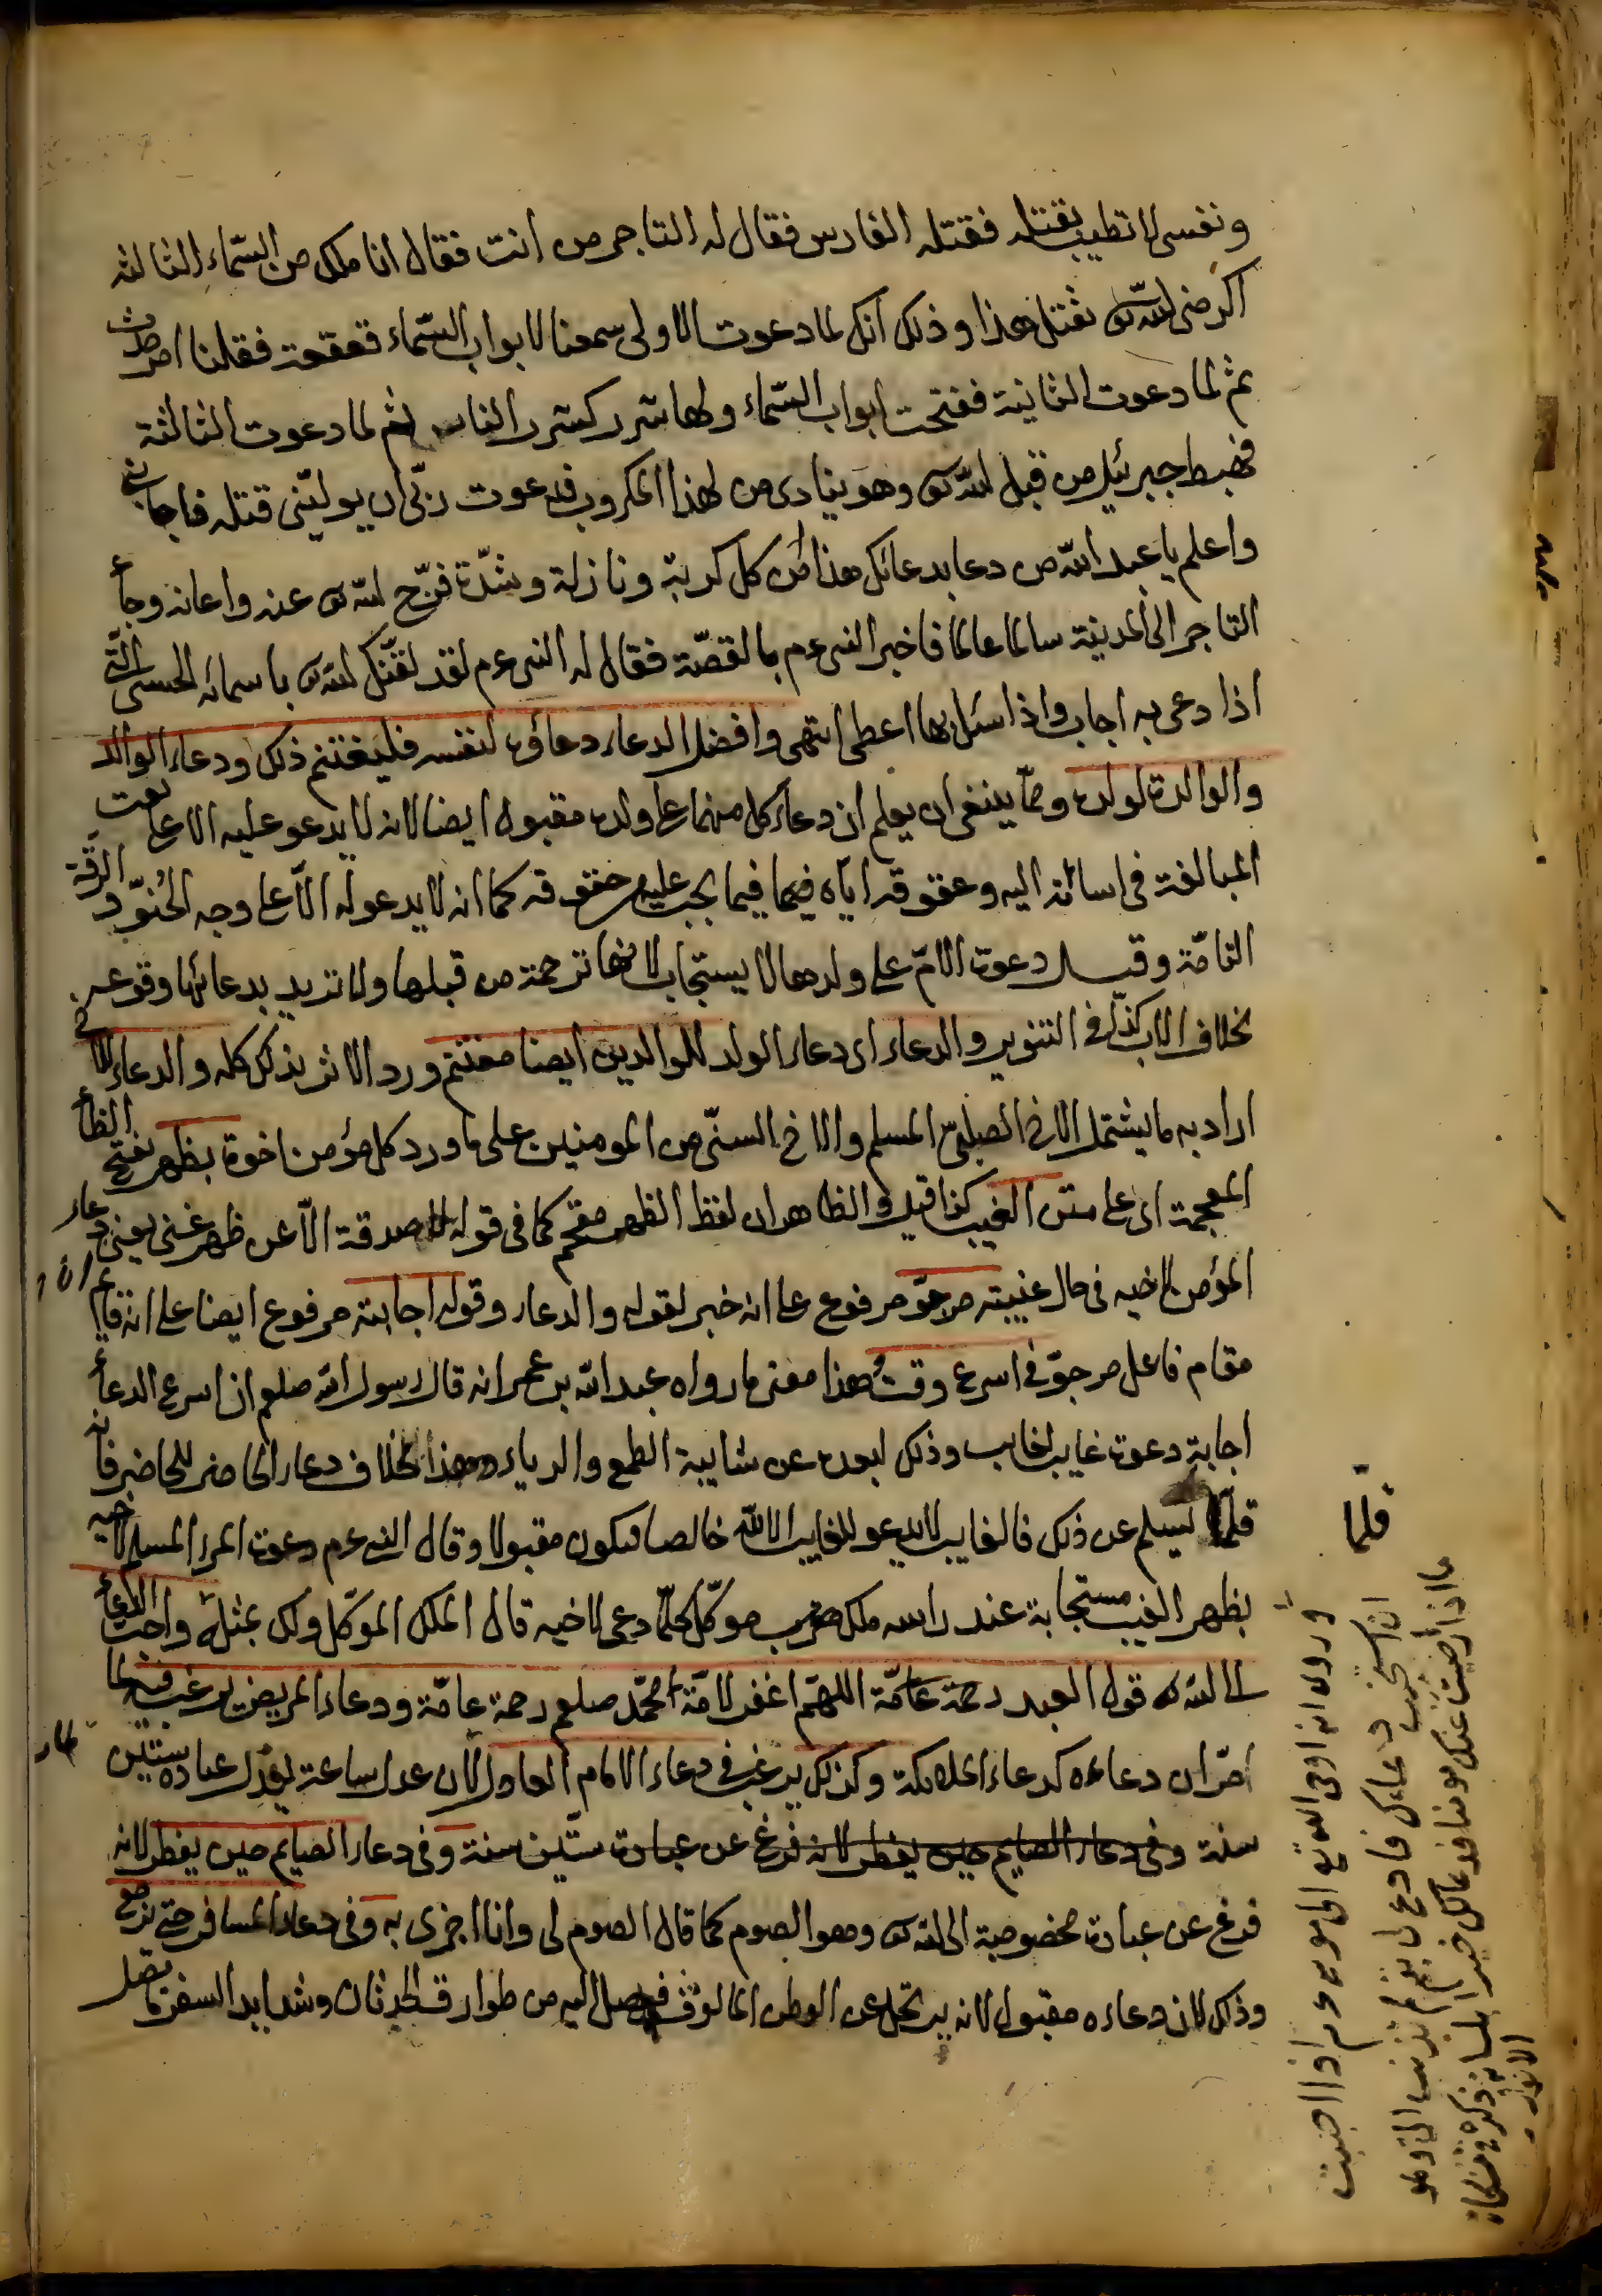 ونفسى لا تطيب بقتله فقتله الفارس فقال له التاجر من انت فقال انا ملك من السّماء الثالثة
اكرمنى الله تع بقتل هذا وذلك انك لما دعوت الاولى سمعنا لابواب السّماء قعقعة فقلنا امر حدث
ثم لما دعوت الثانية ففتحت ابواب السّماء ولها شرر كشرر النار ثم لما دعوت الثالثة
فهبط جبرئيل من قبل الله تع وهو ينادى من لهذا المكروب فدعوت ربّى ان يولّينى قتله فاجابنى
واعلم يا عبد الله من دعا بدعائك هذا فى كل كربة ونازلة وشدّة فرّج الله تع عنه واعانه وجاء
التاجر الى المدينة سالما غانما فاخبر النبى عم بالقصّة فقال له النبى عم لقد لقّنك الله تع باسمائه الحسنى التى
اذا دعى به اجاب واذا سئل بها اعطى انتهى وافضل الدعاء دعاؤه لنفسه فليغتنم ذلك ودعاء الوالد
والوالدة لولده وممّا ينبغى ان يعلم ان دعاء كل منهما على ولده مقبول ايضا لانه لا يدعو عليه الا على نعت
المبالغة فى اسائته اليه وعقوقه اياه فيما يجب عليه من حقوقه كما انه لا يدعو له الّا على وجه الحُنوّ والرقّة
التامّة وقيل دعوة الامّ على ولدها لا يستجاب لانها ترحمه من قبلها ولا تريد بدعائها وقوعه
بخلاف الاب كذا فى التنوير والدعاء اى دعاء الولد للوالدين ايضا مغتنم ورد الاثر بذلك كله والدعاء للاخ
اراد به ما يشتمل الاخ الصلبىّ المسلم والاخ السنّى من المومنين على ما ورد كل مؤمن اخوة بظهر بفتح الظاء
المعجمة اى على متن الغيب كذا قيل والظاهر ان لفظ الظهر مقحم كما فى قوله لا صدقة الّا عن ظهر غنى يعنى دعاء
المؤمن لاخيه فى حال غيبته مرجوّ مرفوع على انه خبر لقوله والدعاء وقوله اجابته مرفوع ايضا على انه قائم
مقام فاعل مرجوّ فى اسرع وقت هذا معنى ما رواه عبد الله بن عمر انه قال رسول الله صلعم ان اسرع الدعاء
اجابة دعوة غايب لغايب وذلك لبعده عن شايبة الطمع والرياء وهذا بخلاف دعاء الحاضر للحاضر فانه
قلّما يسلم عن ذلك فالغايب لا يدعو للغايب الا لله خالصا فيكون مقبولا وقال النبى عم دعوة المرء المسلم لاخيه
بظهر الغيب مستجابة عند راسه ملك موكّل كلّما دعى لاخيه قال الملك الموكّل ولك بمثله واحبّ الدعاء
الى الله تع قول العبد اللهمّ اغفر لامّة محمّد صلعم رحمة عامّة ودعاء المريض يرغب فيه لما
مرّ ان دعاءه كدعاء الملائكة وكذلك يرغب فى دعاء الامام العادل لان عدل ساعة يعدل عبادة ستّين
سنة وفى دعاء الصايم حين يفطر لانه فرغ عن عبادة ستّين سنة وفى دعاء الصايم حين يفطر لانه
فرغ عن عبادة مخصوصة الى الله تع وهو الصوم كما قال الصوم لى وانا اجزى به وفى دعاء المسافر حتى يرجع
وذلك لان دعاءه مقبول لانه يرتحل عن الوطن المالوف فيصل اليه من طوارق الحدثان وشدايد السفر ما يصل
قلما
وروى انه اوحى الله تع الى موسى عم اذا احببت
ان استجيب دعاءك فادع لى بفم لم تذنب الىّ وهو
الانوار